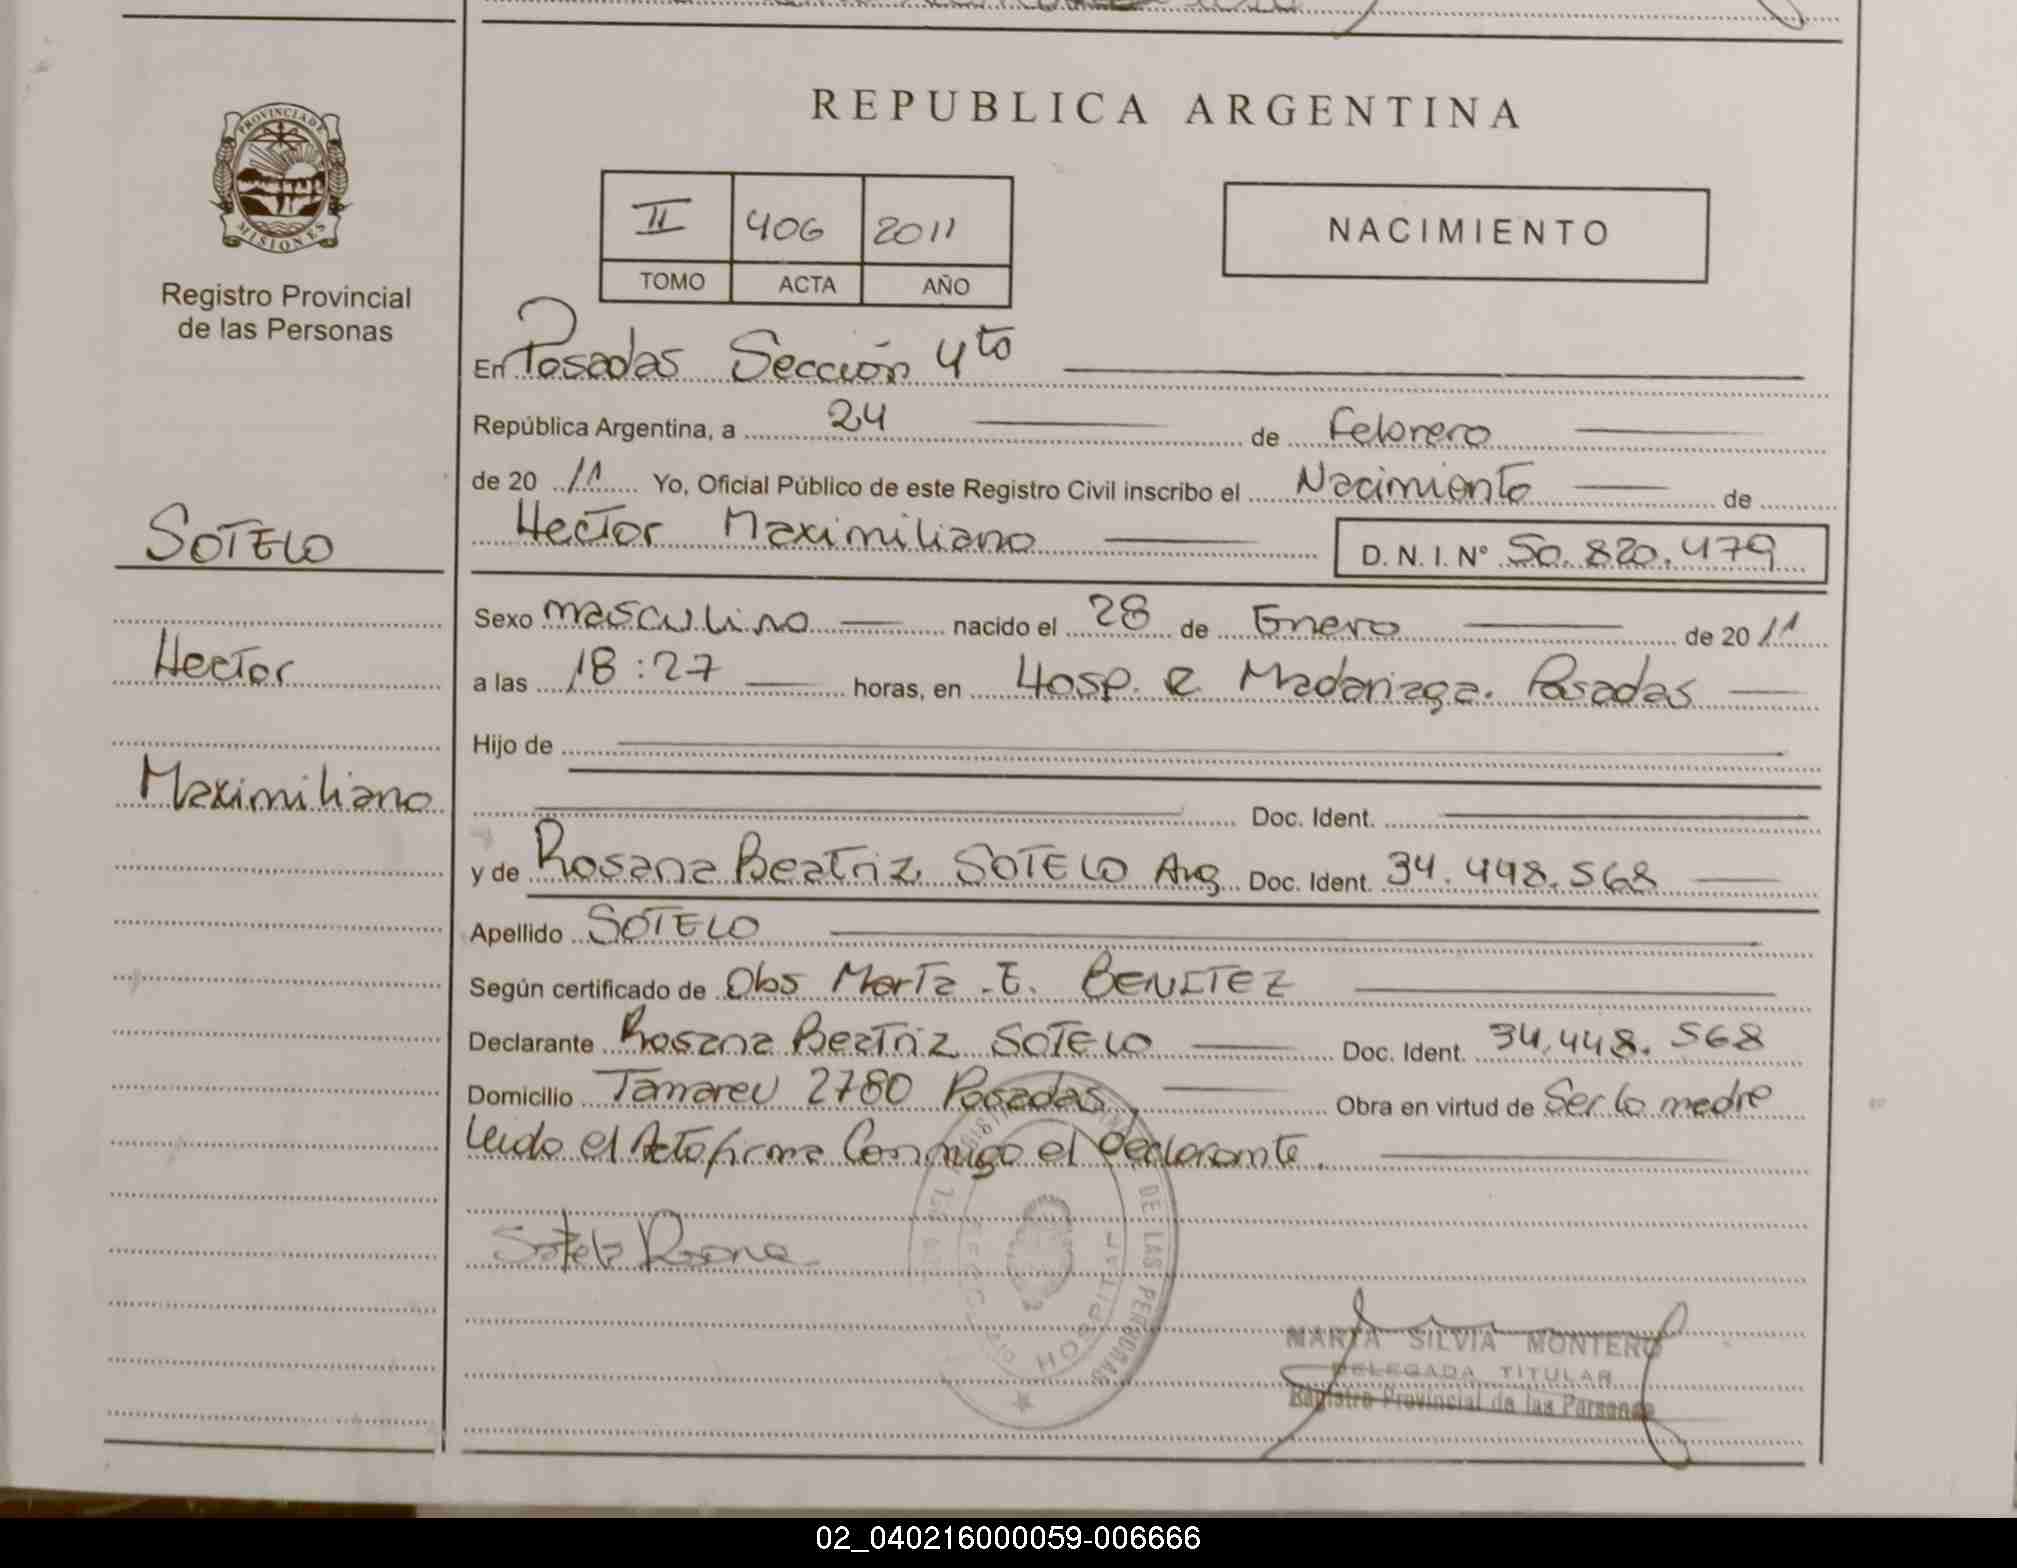 REPUBLICA ARGENTINA
PROVINCIA DE
MISIONES
Registro Provincial
de las Personas
II 406 2011
TOMO ACTA AÑO
NACIMIENTO
En Posadas Sección 4to
República Argentina, a 24 de Febrero
de 20 11 Yo, Oficial Público de este Registro Civil inscribo el Nacimiento de
Hector Maximiliano D. N. I. N° 50.820.479
SOTELO
Hector
Maximiliano
Sexo masculino nacido el 28 de Enero de 20 11
a las 18:27 horas, en Hosp. R Madariaga. Posadas
Hijo de
Doc. Ident.
y de Rosana Beatriz SOTELO Arg Doc. Ident. 34.448.568
Apellido SOTELO
Según certificado de Obs Marta E. BENITEZ
Declarante Rosana Beatriz SOTELO Doc. Ident. 34.448.568
Domicilio 2780 Posadas Obra en virtud de Ser la madre
Leido el Acta firma Conmigo el Declarante.
Sotelo Rosana
DE LAS PERSONAS
HOSPITAL
MARTA SILVIA MONTERO
DELEGADA TITULAR
Registro Provincial de las Personas
02_040216000059-006666